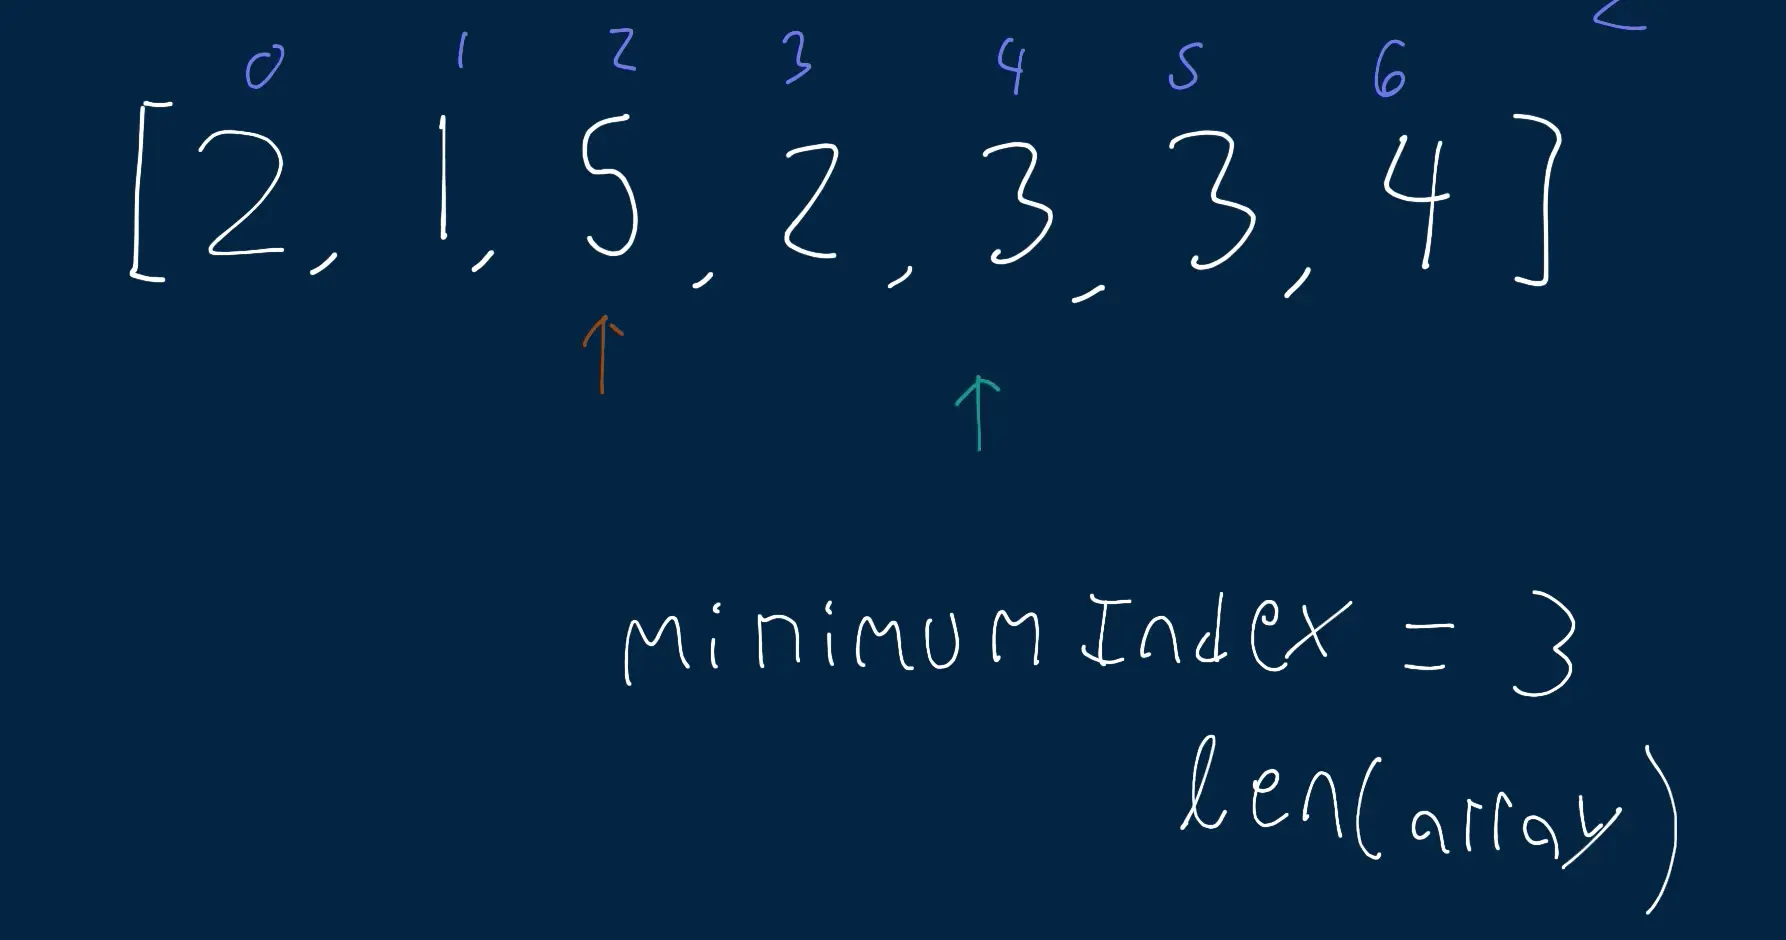 0 1 2 3 4 5 6
[2, 1, 5, 2, 3, 3, 4]
minimumIndex = 3
len(array)